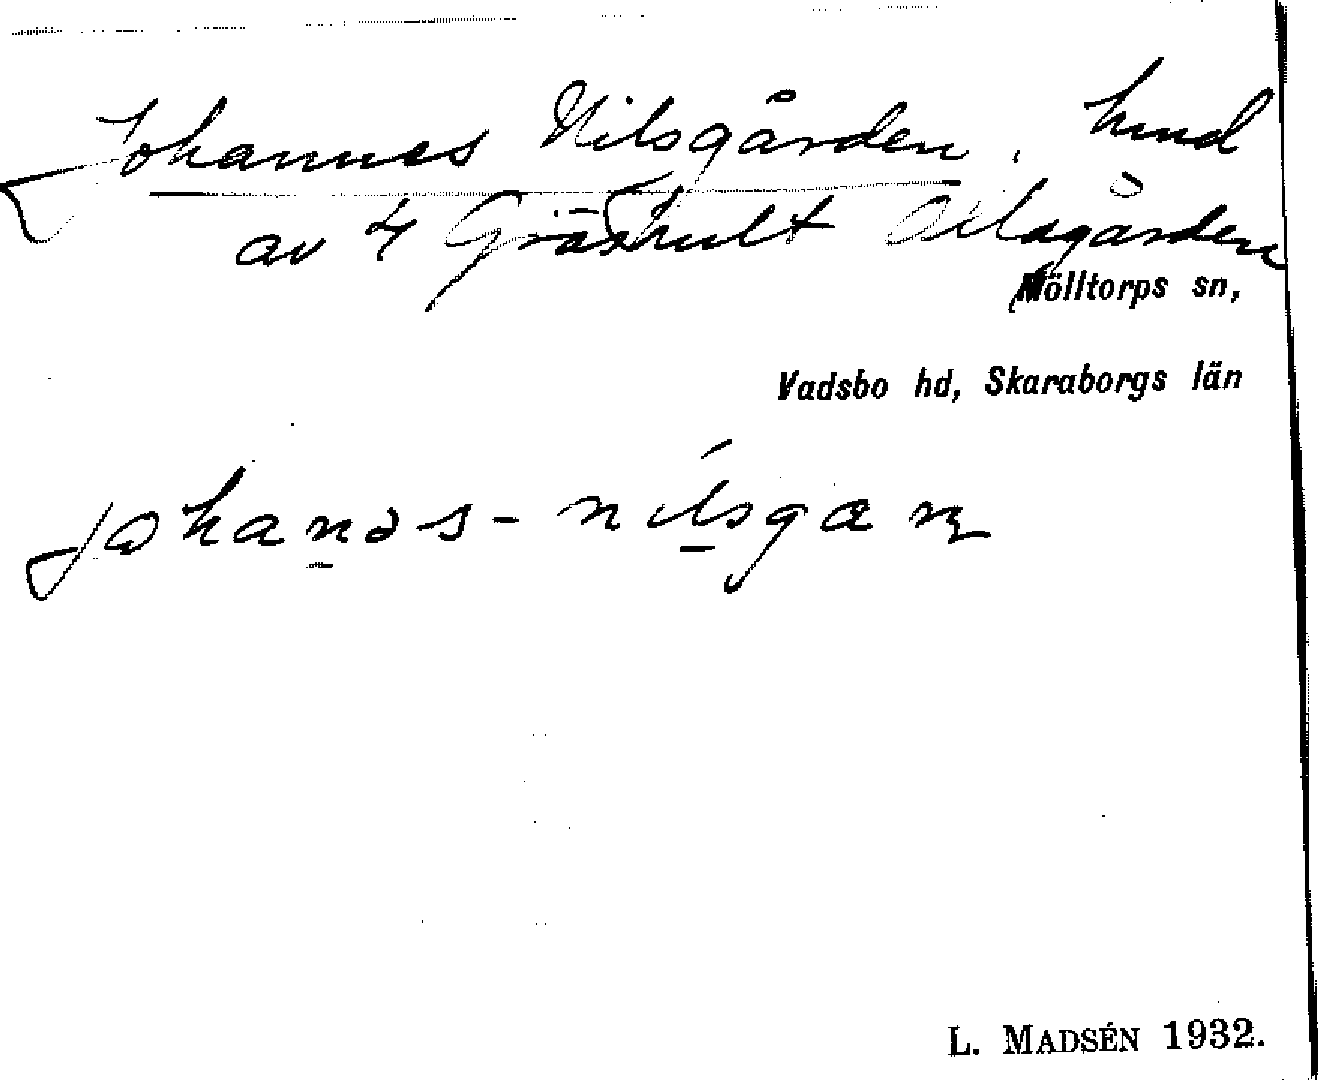 Johannes Nilsgården, hmd
av 4 Gräshult Nilsgården
Mölltorps sn,
Vadsbo hd, Skaraborgs län
johanəs-nilsgan
L. MADSÉN 1932.